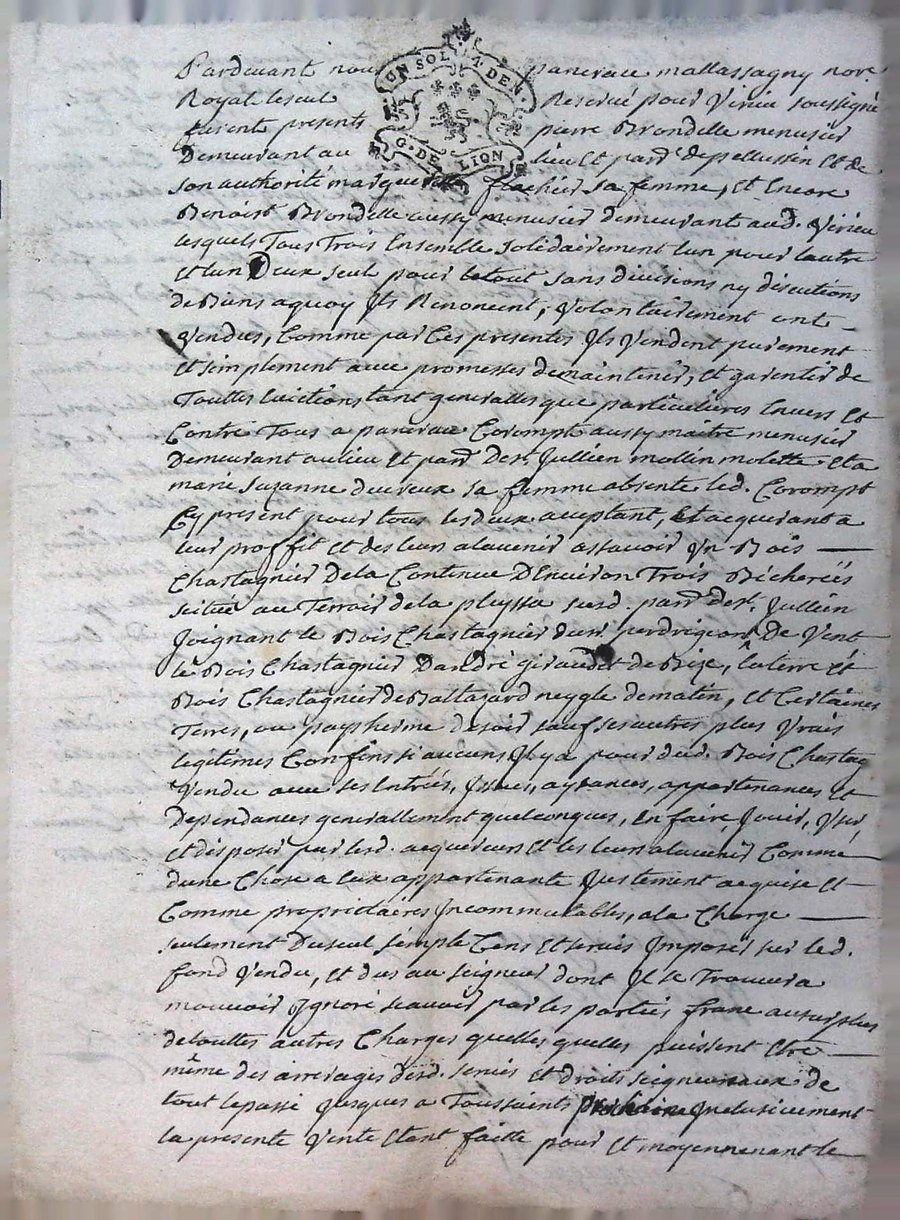 Pardevant nous pancrace mallassagny nore
UN SOL 4 DEN.
G. DE LION
Royal Seul Reservé pour Virieu soussigné
furent presents pierre Brondelle menusier
Demeurant au lieu et parr. depellussin et de
son authorité marguerite flachier sa femme, et Encore
Benoist Brondelle aussy menusier demeurant aud. Virieu
lesquels Tous Trois Ensemble solidairement lun pour lautre
et lun Deux seul pour letout sans divisions ny discutions
de Biens aquoy Ils Renoncent, Volontairement ont
Vendus, Comme par Ces presentes Ils Vendent purement
et simplement avec promesses demaintenir, et garentir de
Touttes Evictions tant generalles que particulieres Envers et
Contre Tous a pancrace Corompt aussy maitre menusier
Demeurant au lieu et parr. De st. Jullien mollin molette et a
marie suzanne ducreux sa femme absente led. Corompt
Cy present pour tous lesdeux aceptant, et acquerant a
leur proffit et des leurs alavenir assavoir Un Bois
Chastagnier Dela Contenue DEnviron Trois Bicherées
scitué au Terroir dela plyssa susd. parr. de st. Jullien
Joignant le Bois Chastagnier dusr. perdrigeon De Vent
le Bois Chastagnier Dandré giraudet de Bize, la terre et
Bois Chastagnier de Baltazard neygle dematin, et Certaines
Terres, ou pasp herme desoir sauf ses autres plus Vrais
legitimes Confins si aucuns Il y a pour dud. Bois Chastag
Vendu avec ses Entrées, Issues, aysances, appartenances et
Dependances generallement quelconques, En faire, Jouir, User,
et disposer par lesd. acquereurs et les leurs alavenir Comme
dune Chose a Eux appartenante Justement acquise et
Comme proprietaires Incommutables, ala Charge
seulement Duseul simple Cens et servis Imposés sur led.
fond Vendu, et dus au seigneur dont Il se Trouvera
mouvoir Ignoré scavoir par les parties franc ausurplus
detouttes autres Charges quelles quelles puissent Etre
même des arrerages desd. servis et Droits seigneuriaux de
tout lepassé Jusques a Toussaints prochaine Inclusivement
la presente Vente Etant faitte pour et moyennenant le